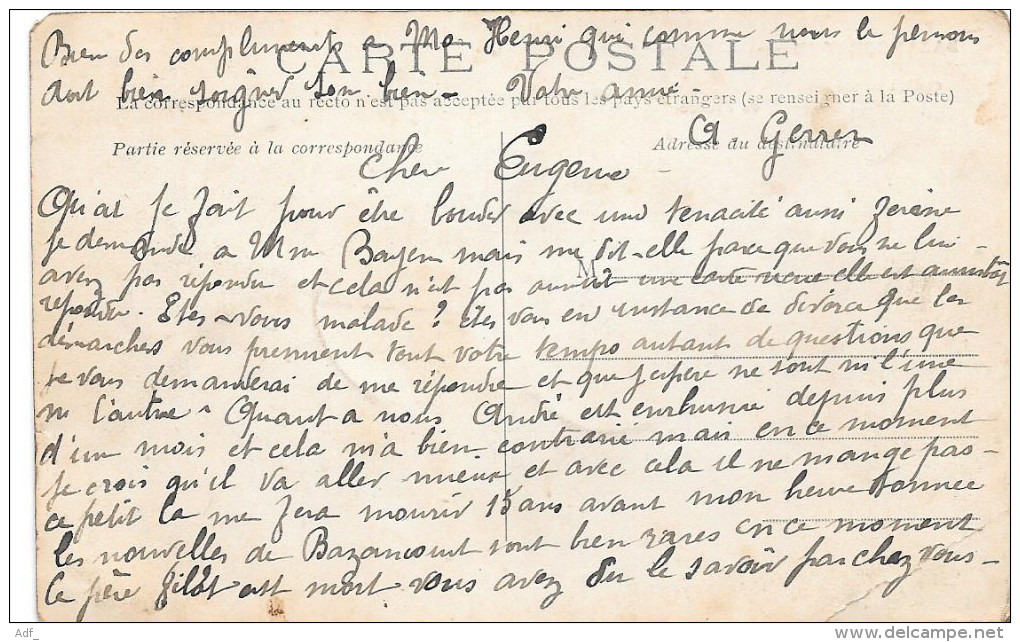 Bien des compliment a Mr Henri qui comme nous le pensons
CARTE POSTALE
doit bien soigner son bien - Votre amie -
La correspondance au recto n'est pas acceptée par tous les pays étrangers (se renseigner à la Poste)
A Gerrer
Partie réservée à la correspondance
Adresse du destinataire
Cher Eugene
Qu'ai je fait pour être bouder avec une tenacité aussi
je demande a Mme Bayen mais me dit-elle parce que vous ne lui
avez pas répondu et cela n'est pas une carte recue elle est aussitôt
repondu. Etes-vous malade ? êtes vous en instance de divorce que les
démarches vous prennent tout votre temps autant de questions que
je vous demanderai de me répondre et que j'espère ne sont ni l'une
ni l'autre - Quant a nous André est enrhumé depuis plus
d'un mois et cela m'a bien contrarié mais en ce moment
je crois qu'il va aller mieux et avec cela il ne mange pas -
ce petit la me fera mourir 15 ans avant mon heure
les nouvelles de Bazancourt sont bien rares en ce moment
le père Gilot est mort vous avez du le savoir par chez vous -
Adf_
www.delcampe.net